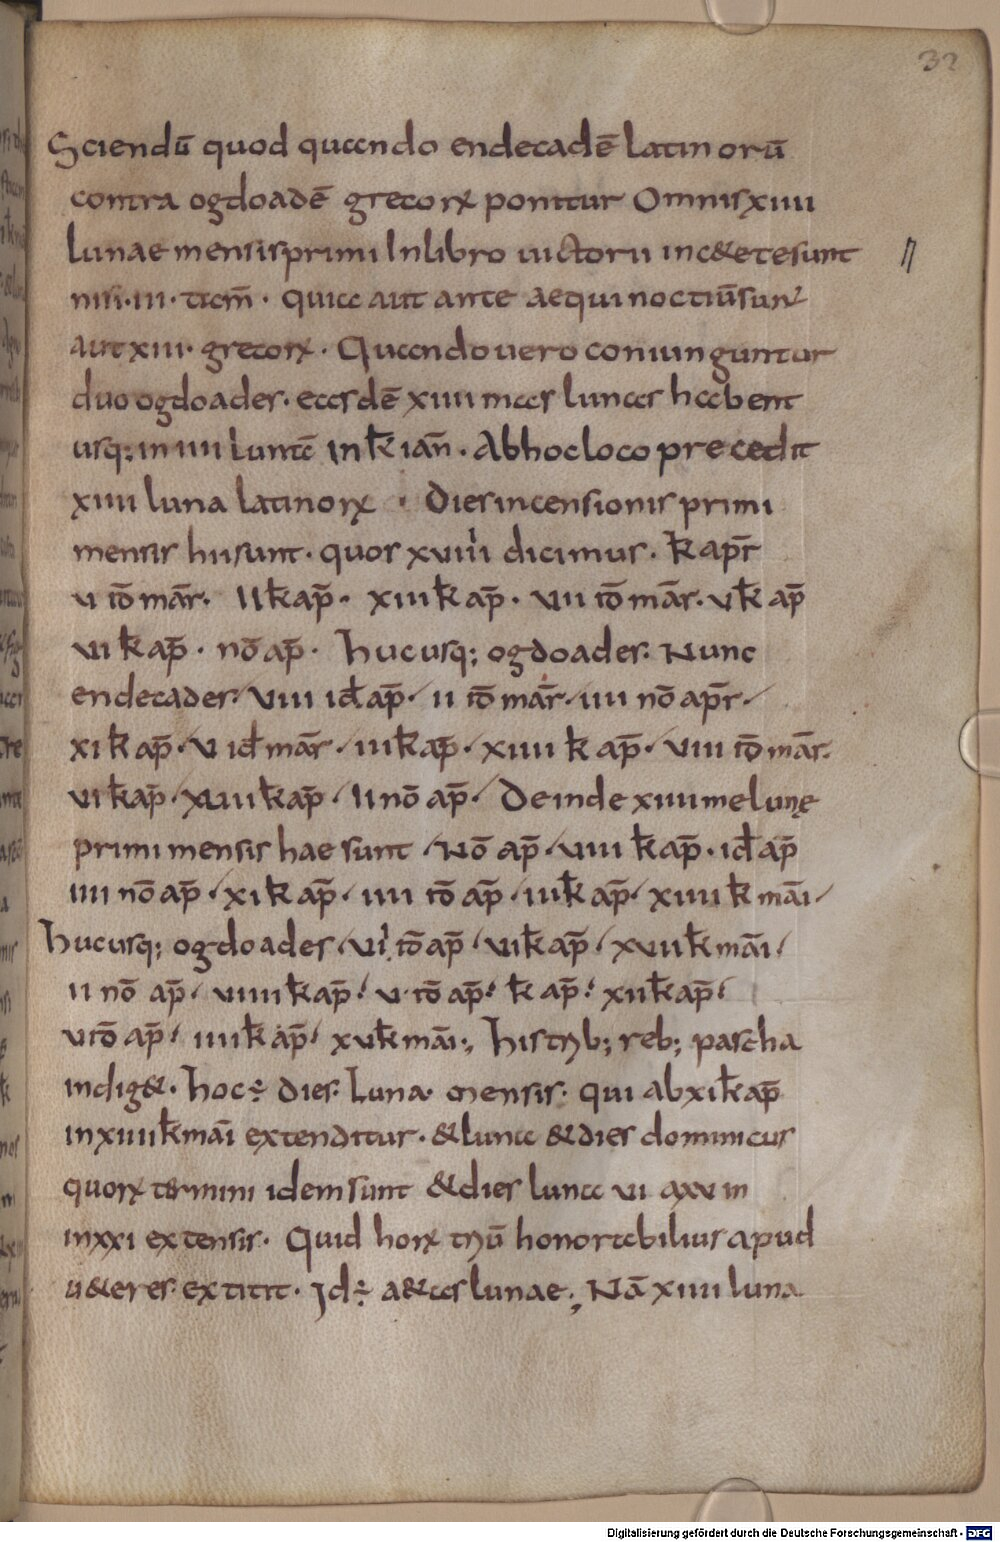 32
Sciendū quod quando endecadē latinorū
contra ogdoadē grecorꝝ ponitur Omnis xiiii
lunae mensis primi In libro uictorii inc&etesunt
nisi·iii·ticm̄· quia aut ante aequinoctiū sunt
aut xiii· grecorꝝ· Quando uero coniunguntur
duo ogdoades· easdē xiiii mas lunas habent
usq; in iiii lunā in k̄ ian̄· Ab hoc loco precedit
xiiii luna latinorꝝ · Dies incensionis primi
mensis hii sunt· quos xuiiii dicimus· k̄ apr̄
u id̄ mār· II k̄ ap̄· xiii k̄ ap̄· uii id̄ mār· u k̄ ap̄
ui k̄ ap̄· nō ap̄· hucusq; ogdoades· Nunc
endecades· uiii id̄ ap̄· ii id̄ mār· iiii nō apr̄·
xi k̄ ap̄· u id̄ mār· iii k̄ ap̄· xiiii k̄ ap̄· uiii id̄ mār·
ui k̄ ap̄· xuii k̄ ap̄· II nō ap̄· Deinde xiiii me lunę
primi mensis hae sunt· Nō ap̄· uiii k̄ ap̄· id̄ ap̄
iiii nō ap̄· xi k̄ ap̄· iiii id̄ ap̄· iii k̄ ap̄· xiiii k̄ māi·
hucusq; ogdoades· ui id̄ ap̄· ui k̄ ap̄· xuii k̄ māi·
ii nō ap̄· uiiii k̄ ap̄· u id̄ ap̄· k̄ ap̄· xii k̄ ap̄·
u id̄ ap̄· iiii k̄ ap̄· xu k̄ māi·, his trib; reb; pascha
indig&· hoc ÷ dies· luna· mensis· qui ab xi k̄ ap̄
in xiiii k̄ māi extenditur· & luna & dies dominicus
quorꝝ termini idem sunt & dies lunae ui a xu in
in xxi extensis· Quid horꝝ triū honorabilius apud
u&eres extitit· Id ÷ a&as lunae·, Nā xiiii luna
Digitalisierung gefördert durch die Deutsche Forschungsgemeinschaft - DFG